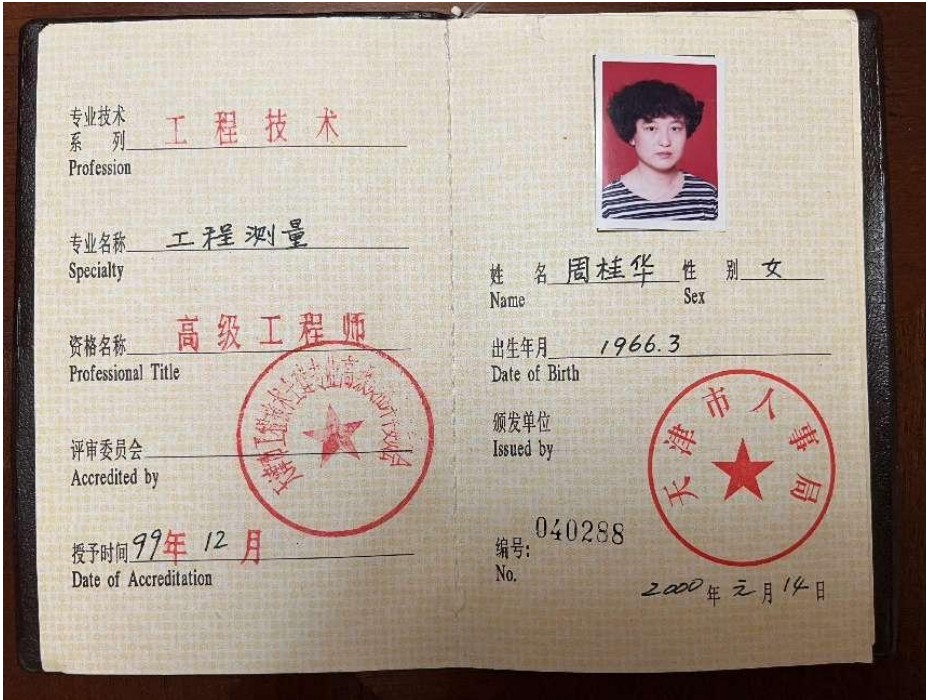 专业技术
系 列 工程技术
Profession
专业名称 工程测量
Specialty
资格名称 高级工程师
Professional Title
评审委员会
Accredited by
授予时间 99年 12 月
Date of Accreditation
姓 名 周桂华 性 别 女
Name Sex
出生年月 1966.3
Date of Birth
颁发单位
Issued by
天津市人事局
编号: 040288
No.
2000 年 元 月 14 日